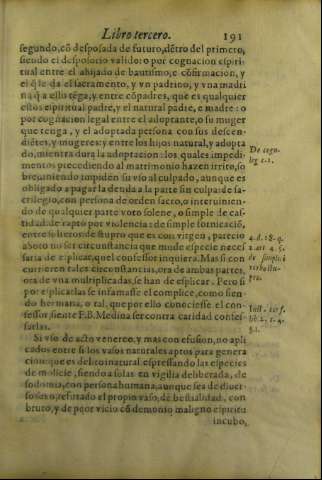 Libro tercero. 191
segundo, cõ desposada de futuro, dẽtro del primero,
siendo el desposorio valido: o por cognacion espiri
tual entre el ahijado de bautismo, e cõfirmacion, y
el q̃ le da el sacramento, y vn padrino, y vna madri
na q̃ a ello tẽga, y entre cõpadres, que es qualquier
destos espiritual padre, y el natural padre, e madre: o
por cognacion legal entre el adoptante, o su muger
que tenga, y el adoptada persona con sus descen-
diẽtes, y mugeres: y entre los hijos natural, y adopta
do, mientra dura la adoptacion: los quales impedi-
mentos precediendo al matrimonio hazen irrito, so
breuiniendo impiden su vso al culpado, aunque es
obligado a pagar la deuda a la parte sin culpa: de sa-
crilegio, con persona de orden sacro, o interuinien-
do de qualquier parte voto solene, o simple de cas-
tidad: de rapto por violencia: de simple fornicaciõ,
entre solteros: de stupro que es con virgen, parecio
a Soto no ser circunstancia que mude especie neces
saria de explicar, quel confessor inquiera. Mas si con
currieren tales circunstancias, ora de ambas partes,
ora de vna multiplicadas, se han de esplicar. Pero si
por esplicarlas se infamasse el complice, como sien-
do hermana, o tal, que por ello conociesse el con-
fessor, siente F.B. Medina ser contra caridad confes-
sarlas.
Si vsò de acto venereo, y mas con efusion, no apli
cados entre si los vasos naturales aptos para genera
cion: que es delito natural espressando las especies
de molicie, siendo a solas en vigilia deliberada, de
sodomia, con persona humana, aunque sea de diuer-
so sexo, refutado el propio vaso, de bestialidad, con
bruto, y de peor vicio cõ demonio maligno espiritu
incubo,
De cogn.
leg. c. 1.
2. d. 18. q.
2. art. 4. §.
de simplici